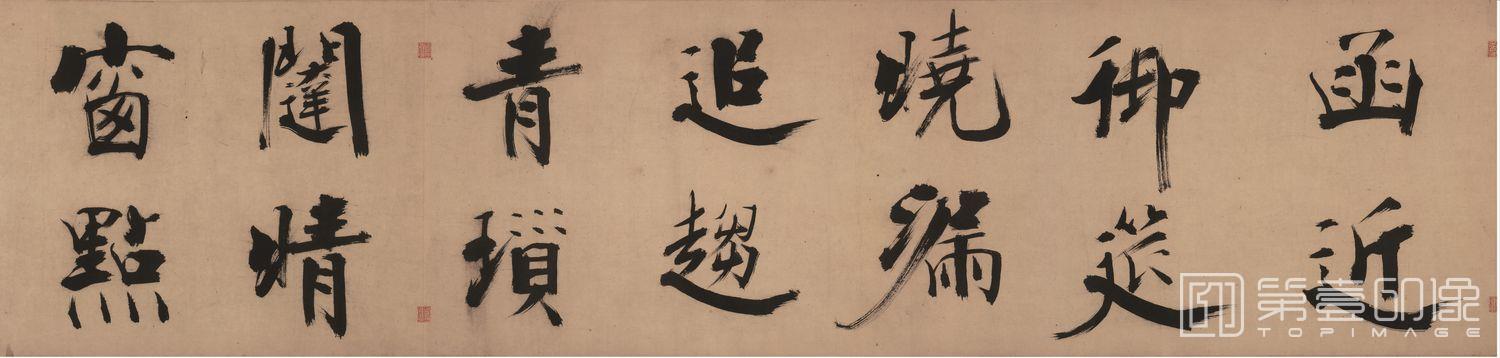 函近
御筵
曉漏
追趨
青瑣
闥晴
窗點
第壹印象
TOPIMAGE